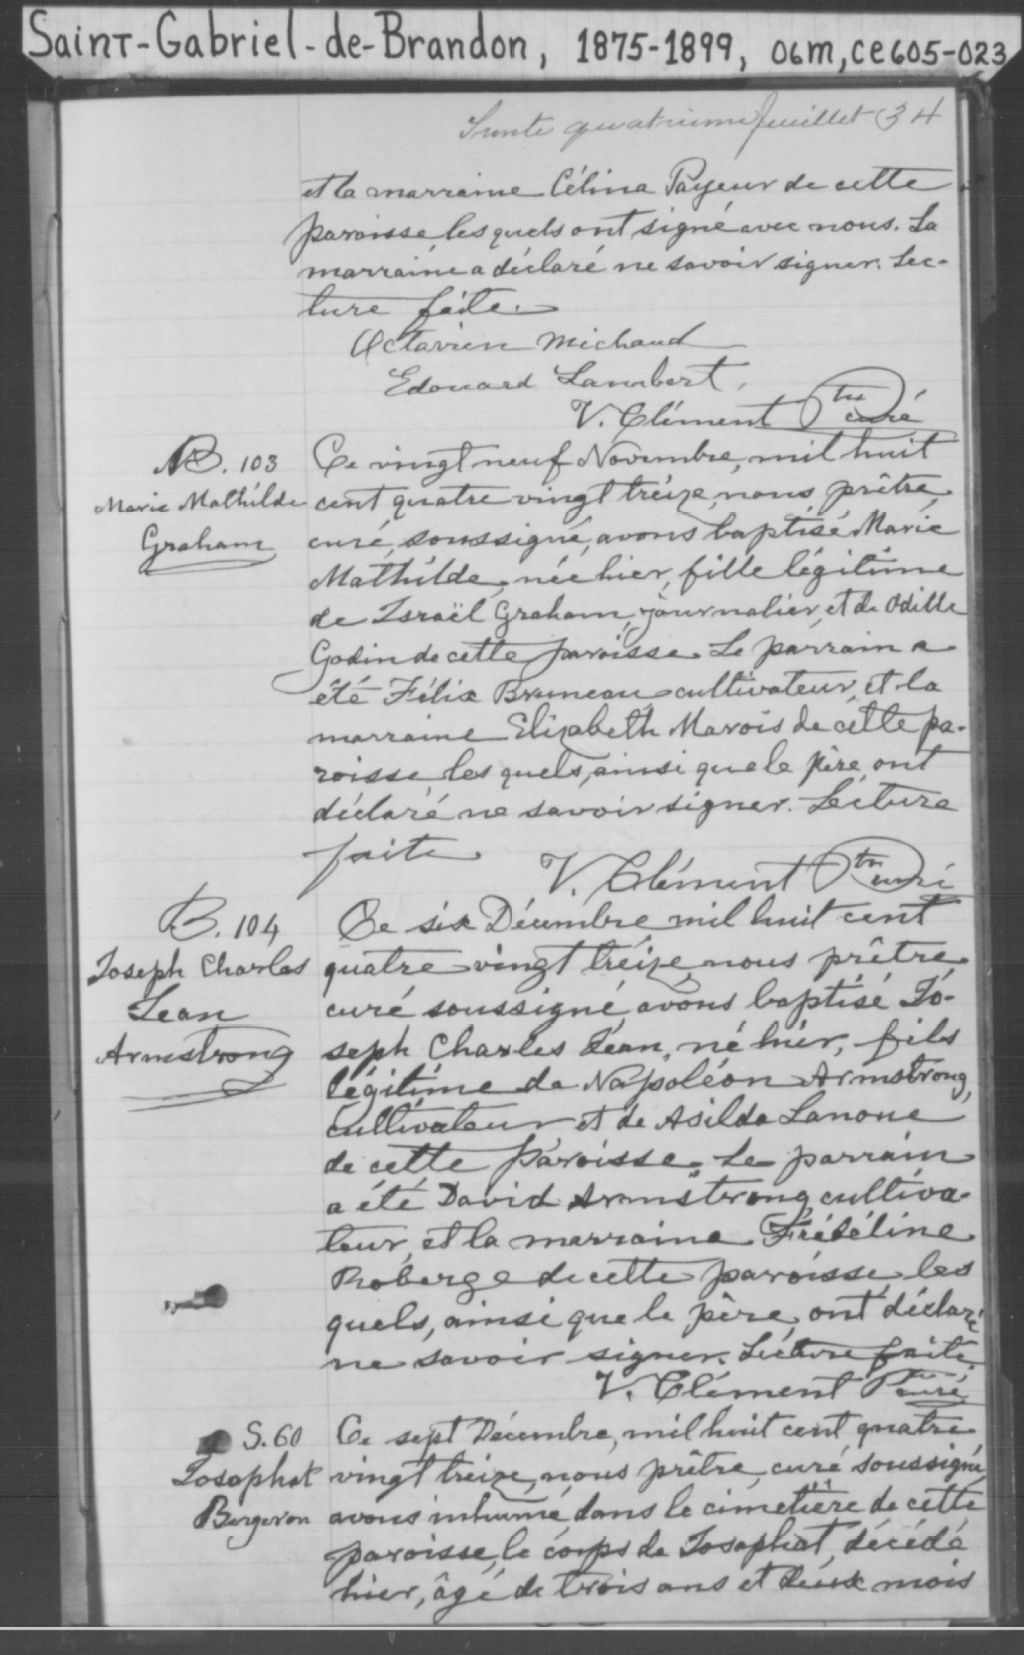 Saint-Gabriel-de-Brandon, 1875-1899, 06m, ce605-023
Trente quatrième feuillet (34
et la marraine Célina Payeur de cette
paroisse, les quels ont signé avec nous. La
marraine a déclaré ne savoir signer. Lec-
ture faite.
Octavien Michaud
Edouard Lambert,
V. Clément Ptre curé
B. 103
Marie Mathilde
Graham
Ce vingt neuf Novembre, mil huit
cent quatre vingt treize, nous prêtre,
curé, soussigné, avons baptisé Marie
Mathilde, née hier, fille légitime
de Israël Graham, journalier, et de Odille
Godin de cette paroisse. Le parrain a
été Félix Bruneau cultivateur, et la
marraine Elizabeth Marois de cette pa-
roisse, les quels, ainsi que le père, ont
déclaré ne savoir signer. Lecture
faite
V. Clément Ptre curé
B. 104
Joseph Charles
Jean
Armstrong
Ce six Décembre mil huit cent
quatre vingt treize, nous prêtre
curé soussigné avons baptisé Jo-
seph Charles Jean, né hier, fils
légitime de Napoléon Armstrong,
cultivateur et de Asilda Lanoue
de cette paroisse. Le parrain
a été David Armstrong, cultiva-
teur, et la marraine
Roberge de cette paroisse, les
quels, ainsi que le père, ont déclaré
ne savoir signer. Lecture faite.
V. Clément Ptre curé
S. 60
Josaphat
Bergeron
Ce sept Décembre, mil huit cent quatre
vingt treize, nous prêtre, curé soussigné,
avons inhumé dans le cimetière de cette
paroisse, le corps de Josaphat, décédé
hier, âgé de trois ans et deux mois